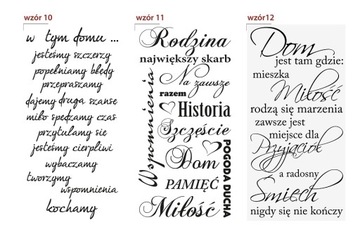 wzór 10
w tym domu ...
jesteśmy szczerzy
popełniamy błędy
przepraszamy
dajemy druga szanse
miło spędzamy czas
przytulamy sie
jesteśmy cierpliwi
wybaczamy
tworzymy
wspomnienia
kochamy
wzór 11
Rodzina
największy skarb
Na zawsze
razem
Wspomnienia
Historia
Szczęście
Dom
PAMIĘĆ
Miłość
POGODA DUCHA
wzór12
Dom
jest tam gdzie:
mieszka
Miłość
rodzą się marzenia
zawsze jest
miejsce dla
Przyjaciół
a radosny
Śmiech
nigdy się nie kończy